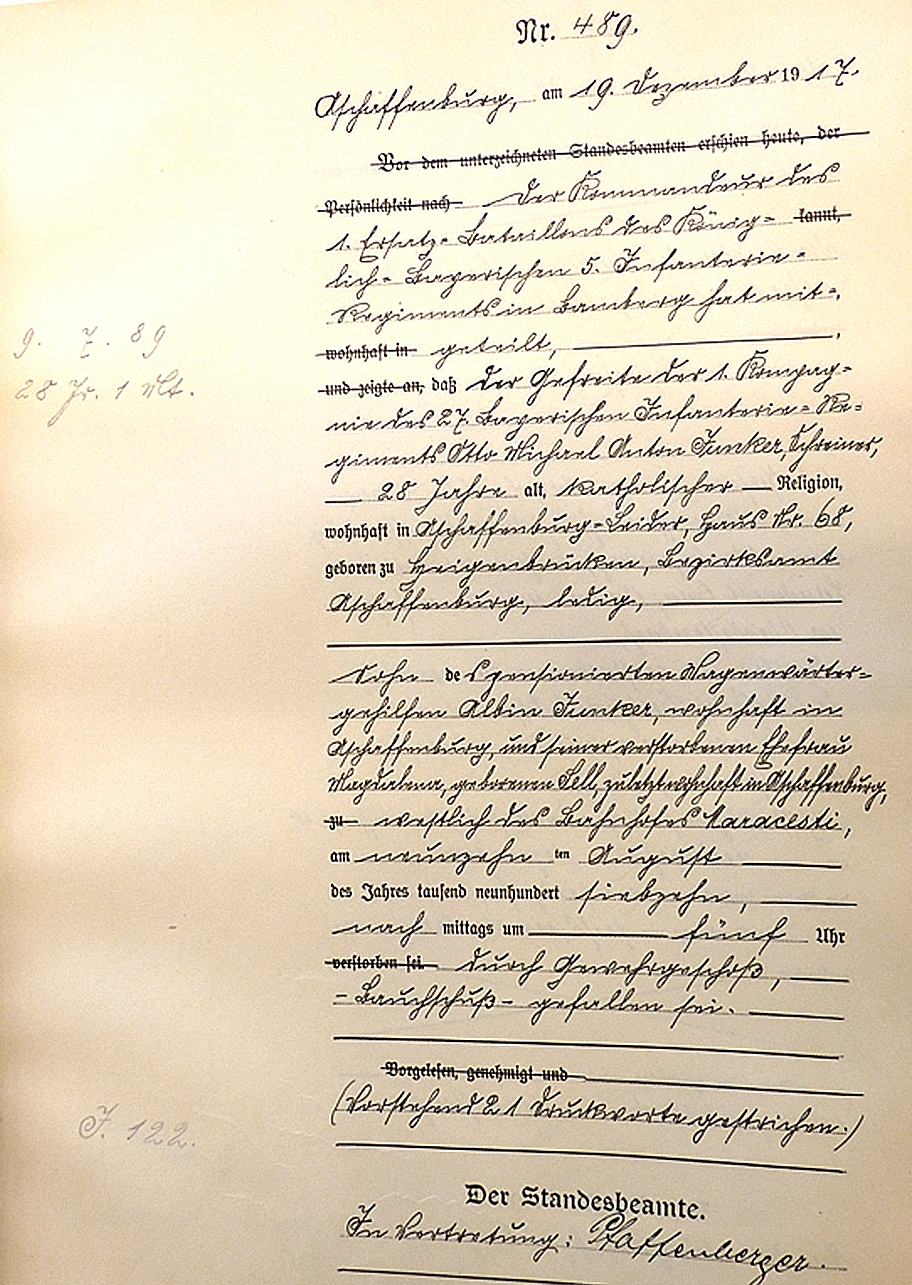 Nr. 489.
Aschaffenburg, am 19. Dezember 1917.
Vor dem unterzeichneten Standesbeamten erschien heute, der
Persönlichkeit nach Der Kommandeur des
1. Ersatz-Bataillons des König- kannt,
lich-Bayerischen 5. Infanterie-
Regiments in Bamberg hat mit-
wohnhaft in geteilt,
und zeigte an, daß der Gefreite der 1. Kompag-
nie des 27. Bayerischen Infanterie-Re-
giments Otto Michael Anton Junker, Schreiner,
28 Jahre alt, katholischer Religion,
wohnhaft in Aschaffenburg-Leider, Haus Nr. 68,
geboren zu Heigenbrücken, Bezirksamt
Aschaffenburg, ledig,
Sohn des pensionierten Wagenwärter-
gehilfen Albin Junker, wohnhaft in
Aschaffenburg, und seiner verstorbenen Ehefrau
Magdalena, geborenen Sell, zuletzt wohnhaft in Aschaffenburg,
zu westlich des Bahnhofes Maracesti,
am neunzehn ten August
des Jahres tausend neunhundert siebzehn,
nach mittags um fünf Uhr
verstorben sei. durch Gewehrgeschoß,
- Bauchschuß - gefallen sei.
Vorgelesen, genehmigt und
(Vorstehend 21 Druckworte gestrichen.)
Der Standesbeamte.
In Vertretung: Pfaffenberger.
9. 7. 89
28 Jr. 1 Mt.
J. 122.